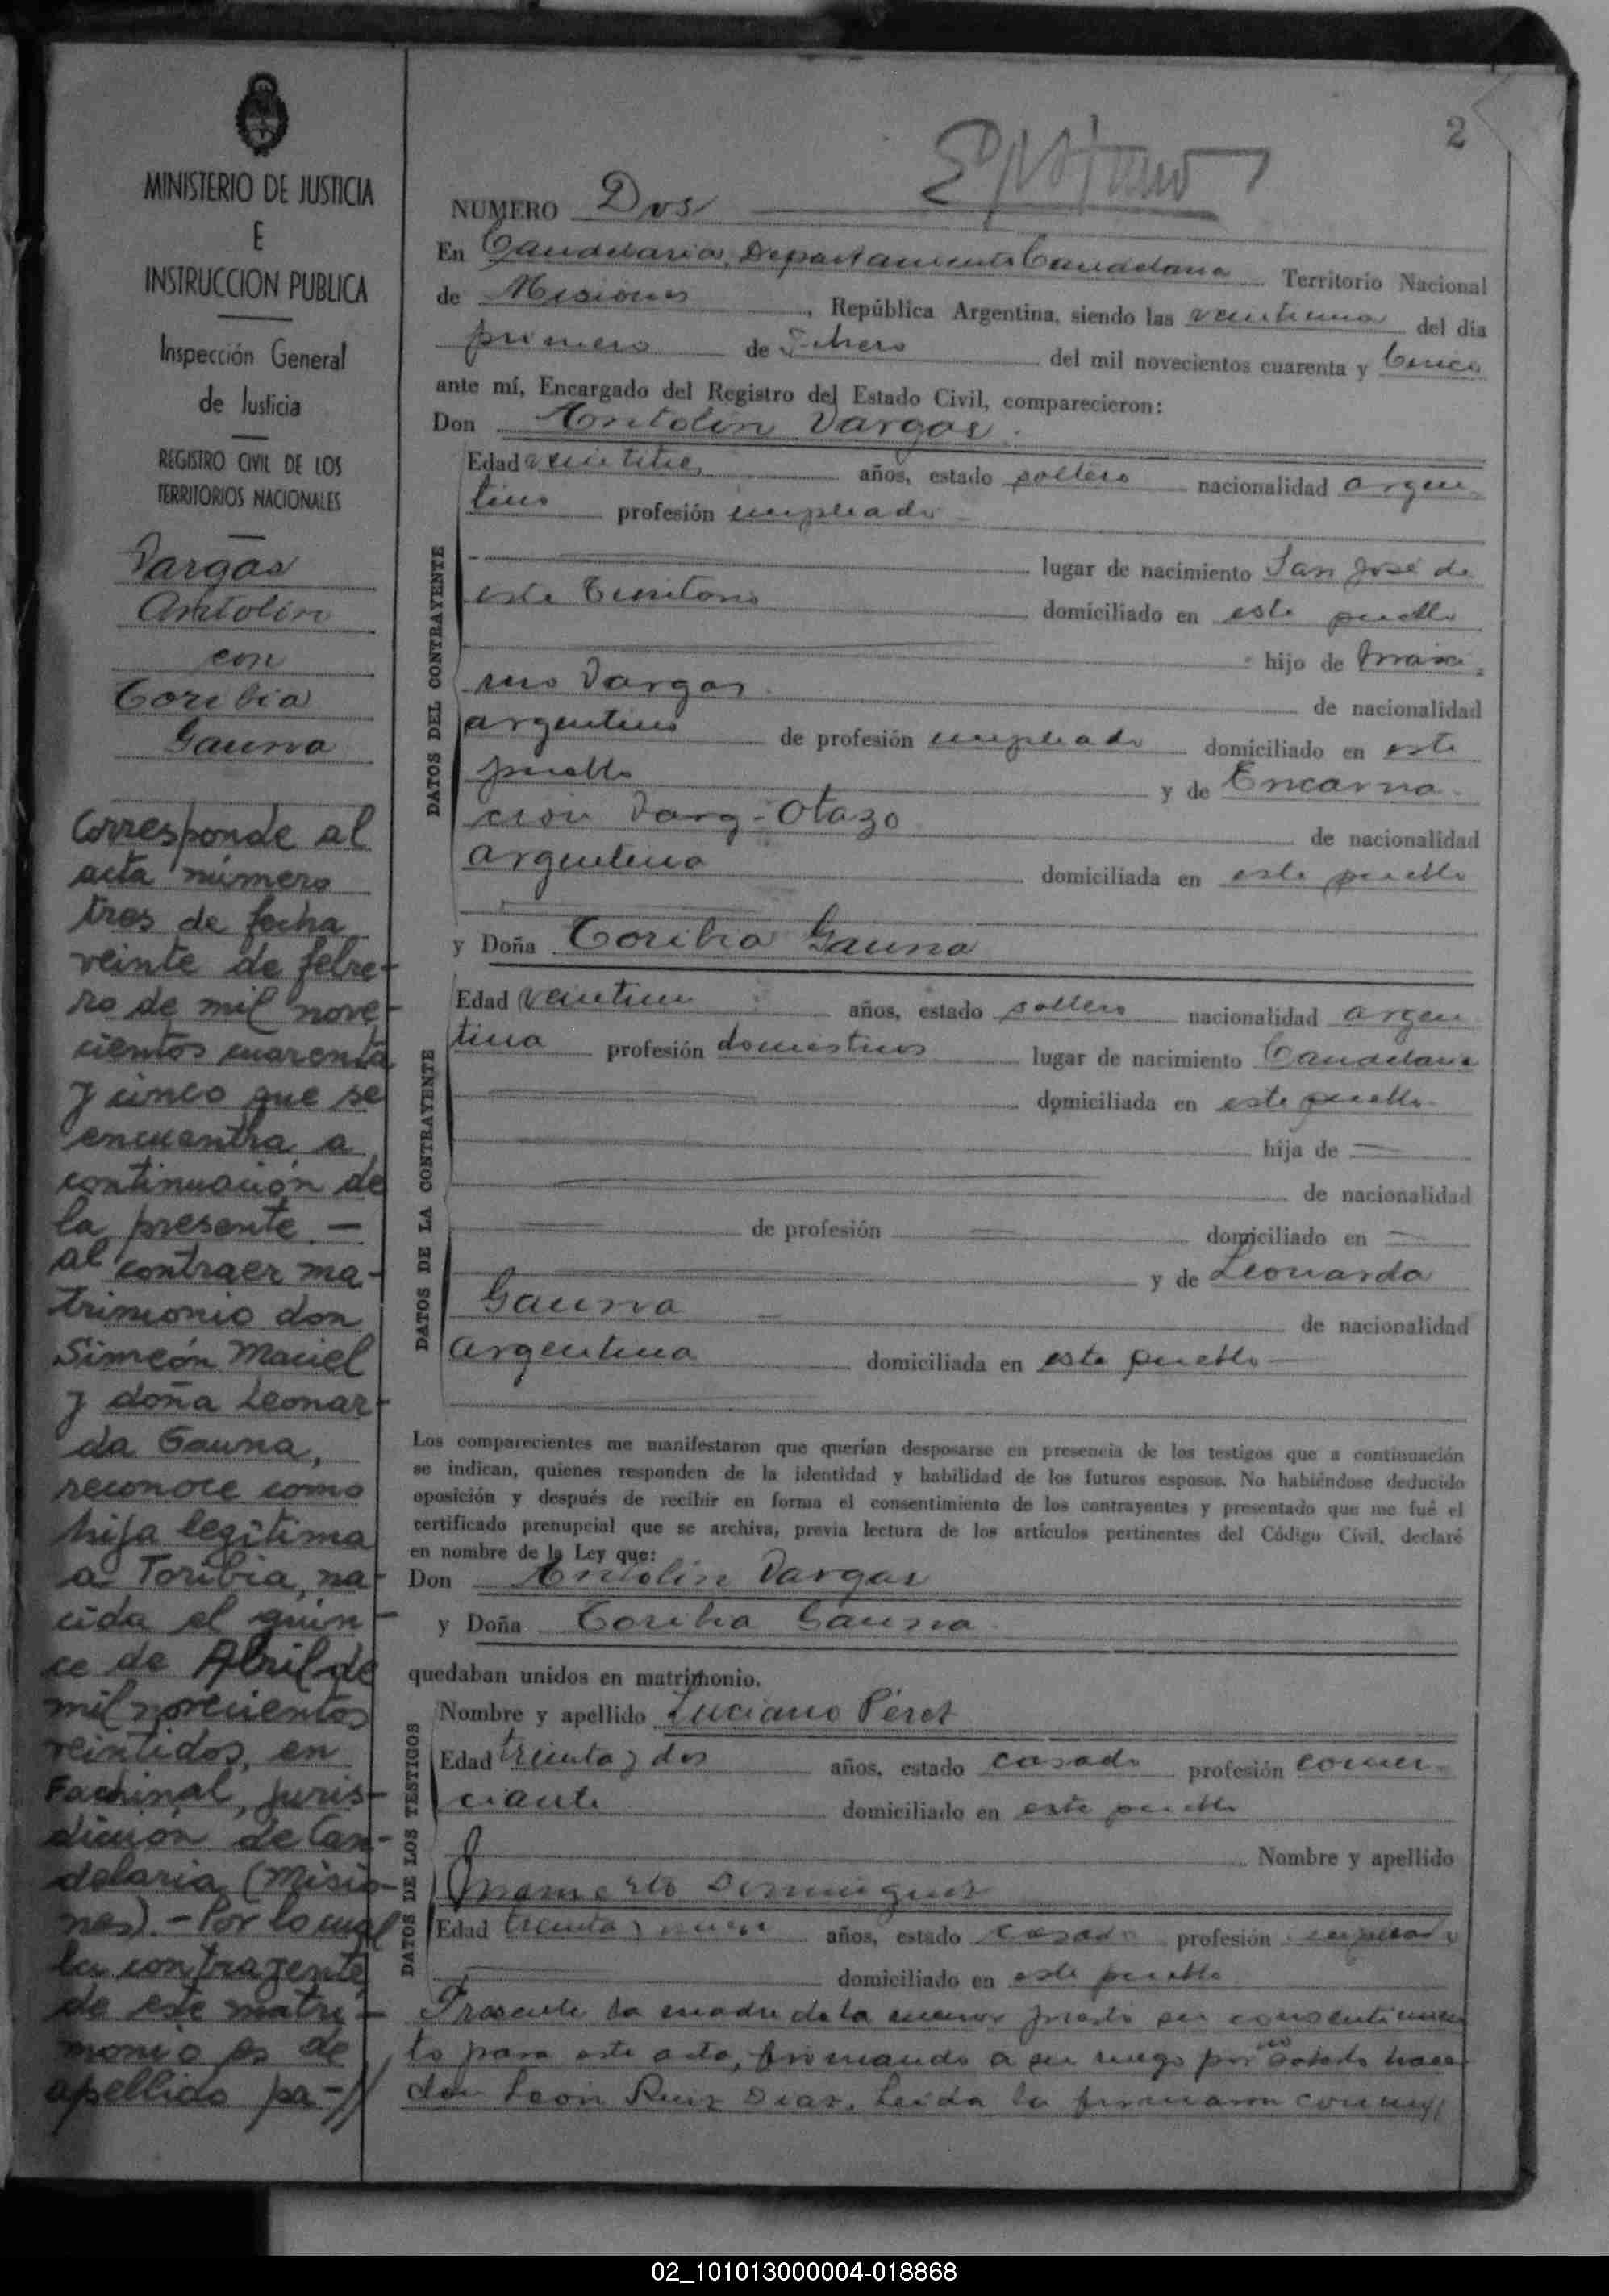 2
MINISTERIO DE JUSTICIA
E
INSTRUCCION PUBLICA
Inspección General
de Justicia
REGISTRO CIVIL DE LOS
TERRITORIOS NACIONALES
Vargas
Antolín
con
Toribia
Gauna
Corresponde al
acta número
tres de fecha
veinte de febre-
ro de mil nove-
cientos cuarenta
y cinco que se
encuentra a
continuación de
la presente —
al contraer ma-
trimonio don
Simeón Maciel
y doña Leonar-
da Gauna,
reconoce como
hija legítima
a Toribia, na-
cida el quin-
ce de Abril de
mil novecientos
veintidos, en
Fachinal, juris-
dicción de Can-
delaria (Misio-
nes).- Por lo cual
la contrayente
de este matri-
monio es de
apellido pa-//
NUMERO Dos
En Candelaria, Departamento Candelaria Territorio Nacional
de Misiones, República Argentina, siendo las veintiuna del día
primero de Febrero del mil novecientos cuarenta y Cinco
ante mí, Encargado del Registro del Estado Civil, comparecieron:
Don Antolín Vargas
DATOS DEL CONTRAYENTE
Edad veintitres años, estado soltero nacionalidad argen
tino profesión empleado
lugar de nacimiento San José de
este Territorio domiciliado en este pueblo
hijo de Maxi-
mo Vargas de nacionalidad
argentino de profesión empleado domiciliado en este
pueblo y de Encarna-
ción Otazo de nacionalidad
argentina domiciliada en este pueblo
y Doña Toribia Gauna
DATOS DE LA CONTRAYENTE
Edad años, estado soltera nacionalidad argen
tina profesión lugar de nacimiento Candelaria
domiciliada en este pueblo
hija de
de nacionalidad
de profesión domiciliado en
y de Leonarda
Gauna de nacionalidad
argentina domiciliada en este pueblo
Los comparecientes me manifestaron que querían desposarse en presencia de los testigos que a continuación
se indican, quienes responden de la identidad y habilidad de los futuros esposos. No habiéndose deducido
oposición y después de recibir en forma el consentimiento de los contrayentes y presentado que me fué el
certificado prenupcial que se archiva, previa lectura de los artículos pertinentes del Código Civil, declaré
en nombre de la Ley que:
Don Antolín Vargas
y Doña Toribia Gauna
quedaban unidos en matrimonio.
DATOS DE LOS TESTIGOS
Nombre y apellido Luciano Péret
Edad treinta y dos años, estado casado profesión comer-
ciante domiciliado en este pueblo
Nombre y apellido
Mamerto Dominguez
Edad treinta y nueve años, estado casado profesión empleado
domiciliado en este pueblo
Presente la madre de la menor presta su consentimien
to para este acto, firmando a su ruego por no saberlo hacer
don León Ruiz Diaz. Leída la firmaron conmigo
02_101013000004-018868